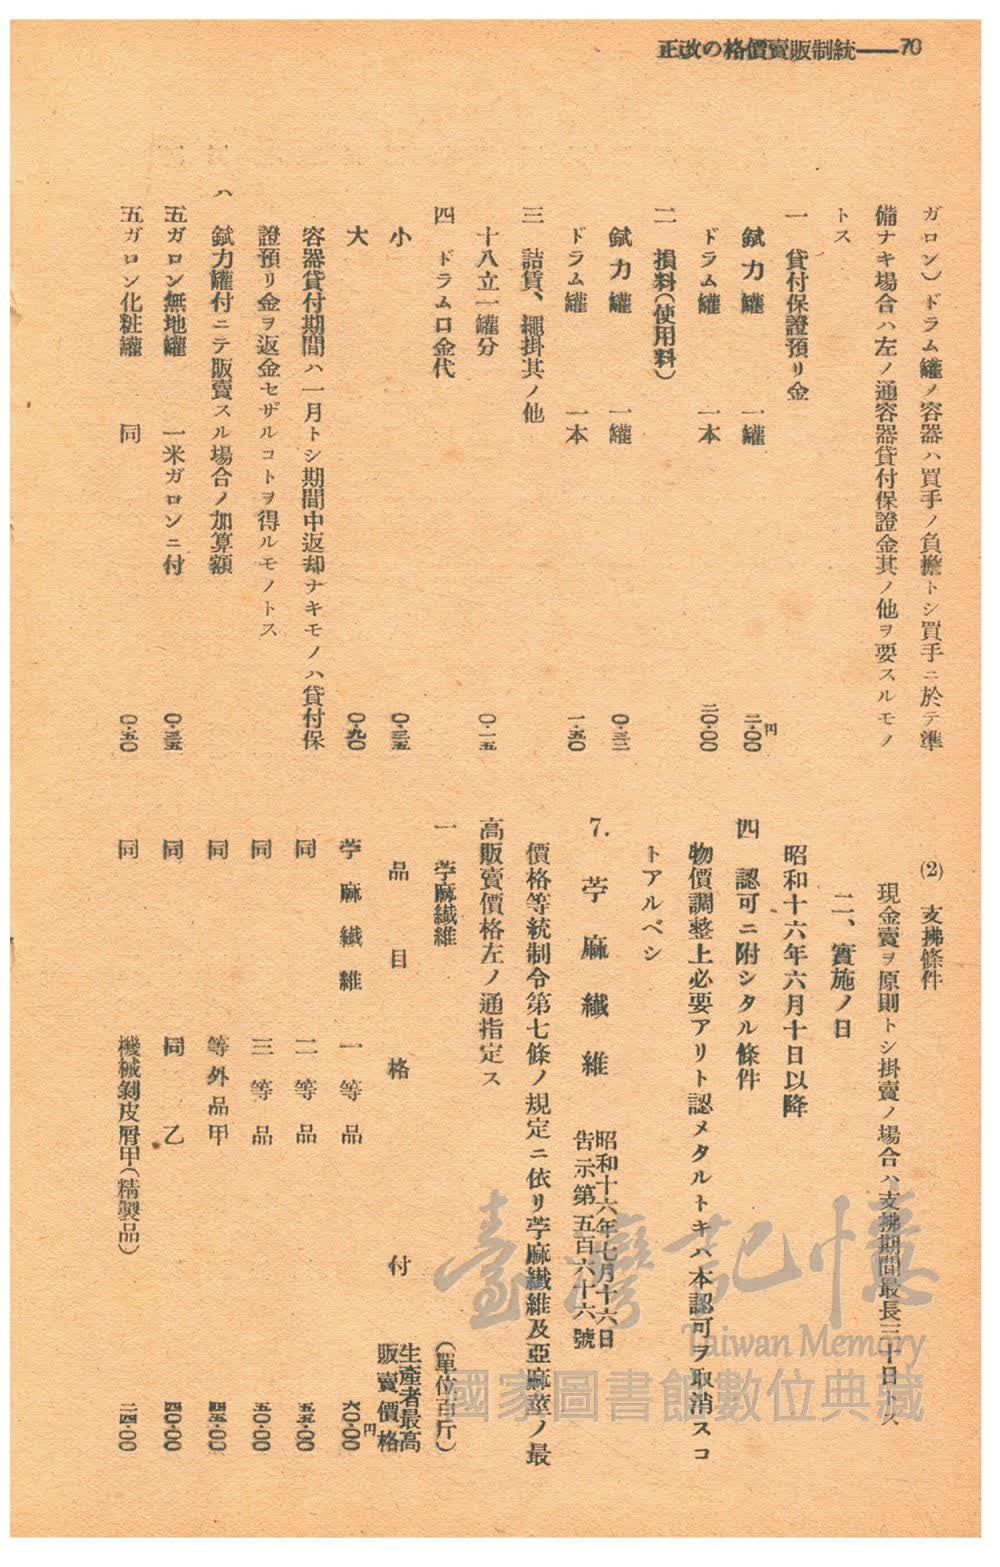 正改の格價賣販制統——70
ガロン）ドラム罐ノ容器ハ買手ノ負擔トシ買手ニ於テ準
備ナキ場合ハ左ノ通容器貸付保證金其ノ他ヲ要スルモノ
トス
一　貸付保證預リ金
鉞力罐　一罐　二・〇〇円
ドラム罐　一本　二〇・〇〇
二　損料（使用料）
鉞力罐　一罐　〇・三二
ドラム罐　一本　一・五〇
三　詰賃、繩掛其ノ他
十八立一罐分　〇・一五
四　ドラム口金代
小　〇・三五
大　〇・九〇
容器貸付期間ハ一月トシ期間中返却ナキモノハ貸付保
證預リ金ヲ返金セザルコトヲ得ルモノトス
ハ　鉞力罐付ニテ販賣スル場合ノ加算額
五ガロン無地罐　一米ガロンニ付　〇・三五
五ガロン化粧罐　同　〇・五〇
(2)　支拂條件
現金賣ヲ原則トシ掛賣ノ場合ハ支拂期間最長三十日トス
二、實施ノ日
昭和十六年六月十日以降
四　認可ニ附シタル條件
物價調整上必要アリト認メタルトキハ本認可ヲ取消スコ
トアルベシ
7.　苧麻纖維　昭和十六年七月十六日
告示第五百六十六號
價格等統制令第七條ノ規定ニ依リ苧麻纖維及亞麻莖ノ最
高販賣價格左ノ通指定ス
一　苧麻纖維　（單位百斤）
品目　格付　生產者最高
販賣價格
苧麻纖維　一等品　六〇・〇〇円
同　二等品　五五・〇〇
同　三等品　五〇・〇〇
同　等外品甲　四五・〇〇
同　同　乙　四〇・〇〇
同　機械剝皮屑甲（精製品）　二四・〇〇
臺灣記憶
Taiwan Memory
國家圖書館數位典藏